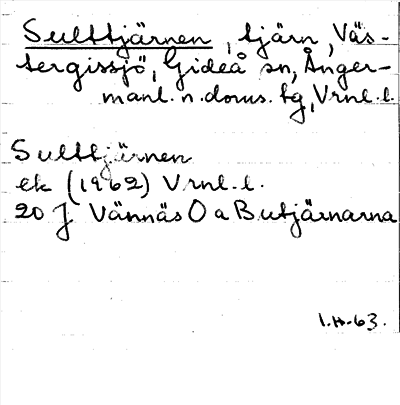 Sulttjärnen, tjärn, Väs-
tergissjö, Gideå sn, Ånger-
manl. n. doms. tg, Vrnl. l.
Sulttjärnen
ek (1962) Vrnl. l.
20 J Vännäs O a Butjärnarna